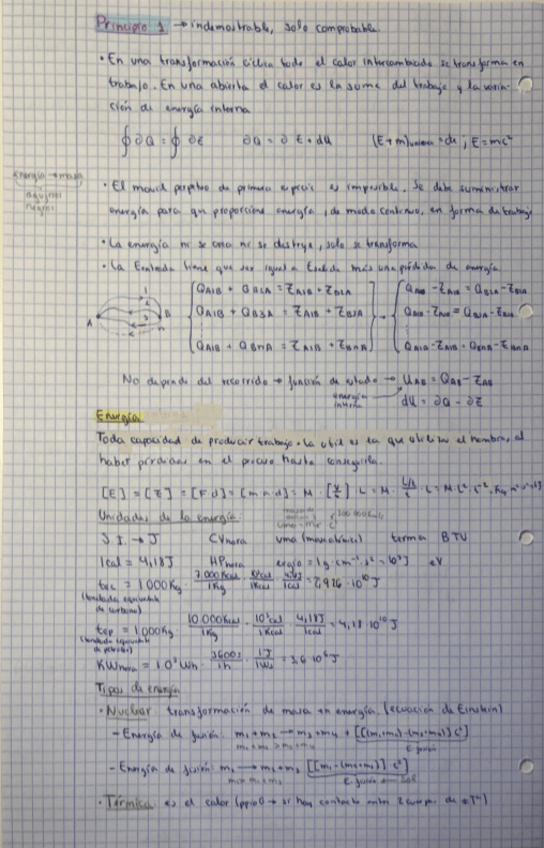 Principio 1 → indemostrable, solo comprobable.
• En una transformación cíclica todo el calor intercambiado se transforma en
trabajo. En una abierta el calor es la suma del trabajo y la varia-
ción de energía interna
∮∂Q = ∮∂Z ∂Q = ∂Z + dU (E+m)universo = cte ; E=mc²
Energía → masa
agujeros
negros
• El movil perpetuo de primera especie es imposible. Se debe suministrar
energía para que proporcione energía, de modo continuo, en forma de trabajo
• La energía ni se crea ni se destruye, solo se transforma
• La Entrada tiene que ser igual a Esalida más una pérdida de energía
A B 1 2 3 n
QA1B + QB2A = ZA1B + ZB2A → QA1B - ZA1B = QB2A - ZB2A
QA1B + QB3A = ZA1B + ZB3A QA1B - ZA1B = QB3A - ZB3A
⋮ ⋮
QA1B + QBnA = ZA1B + ZBnA QA1B - ZA1B = QBnA - ZBnA
No depende del recorrido → función de estado → UAB = QAB - ZAB
energía interna dU = ∂Q - ∂Z
Energía
Toda capacidad de producir trabajo. La útil es la que utiliza el hombre, al
haber pérdidas en el proceso hasta conseguirla.
[E] = [Z] = [F·d] = [m·a·d] = M · [v/t] L = M · L/t/t · L = M·L²·t⁻²
Unidades de la energía:
S.I. → J CVhora uma (masa atómica) termia BTU
1cal = 4,18J HPhora ergio = 1g·cm²·s⁻² eV
tec = 1000Kg · 7000Kcal/1Kg · 10³cal/1Kcal · 4,18J/1cal = 2,926·10¹⁰J
(tonelada equivalente
de carbono)
tep = 1000Kg · 10.000Kcal/1Kg · 10³cal/1Kcal · 4,18J/1cal = 4,18·10¹⁰J
(tonelada equivalente
de petróleo)
KWhora = 10³Wh · 3600s/1h · 1J/1Ws = 3,6·10⁶J
Tipos de energía
• Nuclear: transformación de masa en energía. (ecuación de Einstein)
- Energía de fusión: m₁ + m₂ → m₃ + m₄ + [[(m₁+m₂)-(m₃+m₄)] c²]
m₁+m₂ > m₃+m₄ E. fusión
- Energía de fisión: m₁ → m₂ + m₃ [[m₁-(m₂+m₃)] c²]
m₁ > m₂+m₃ E. fisión
• Térmica: es el calor (ppio0 → si hay contacto entre 2 cuerpos de ≠Tª)